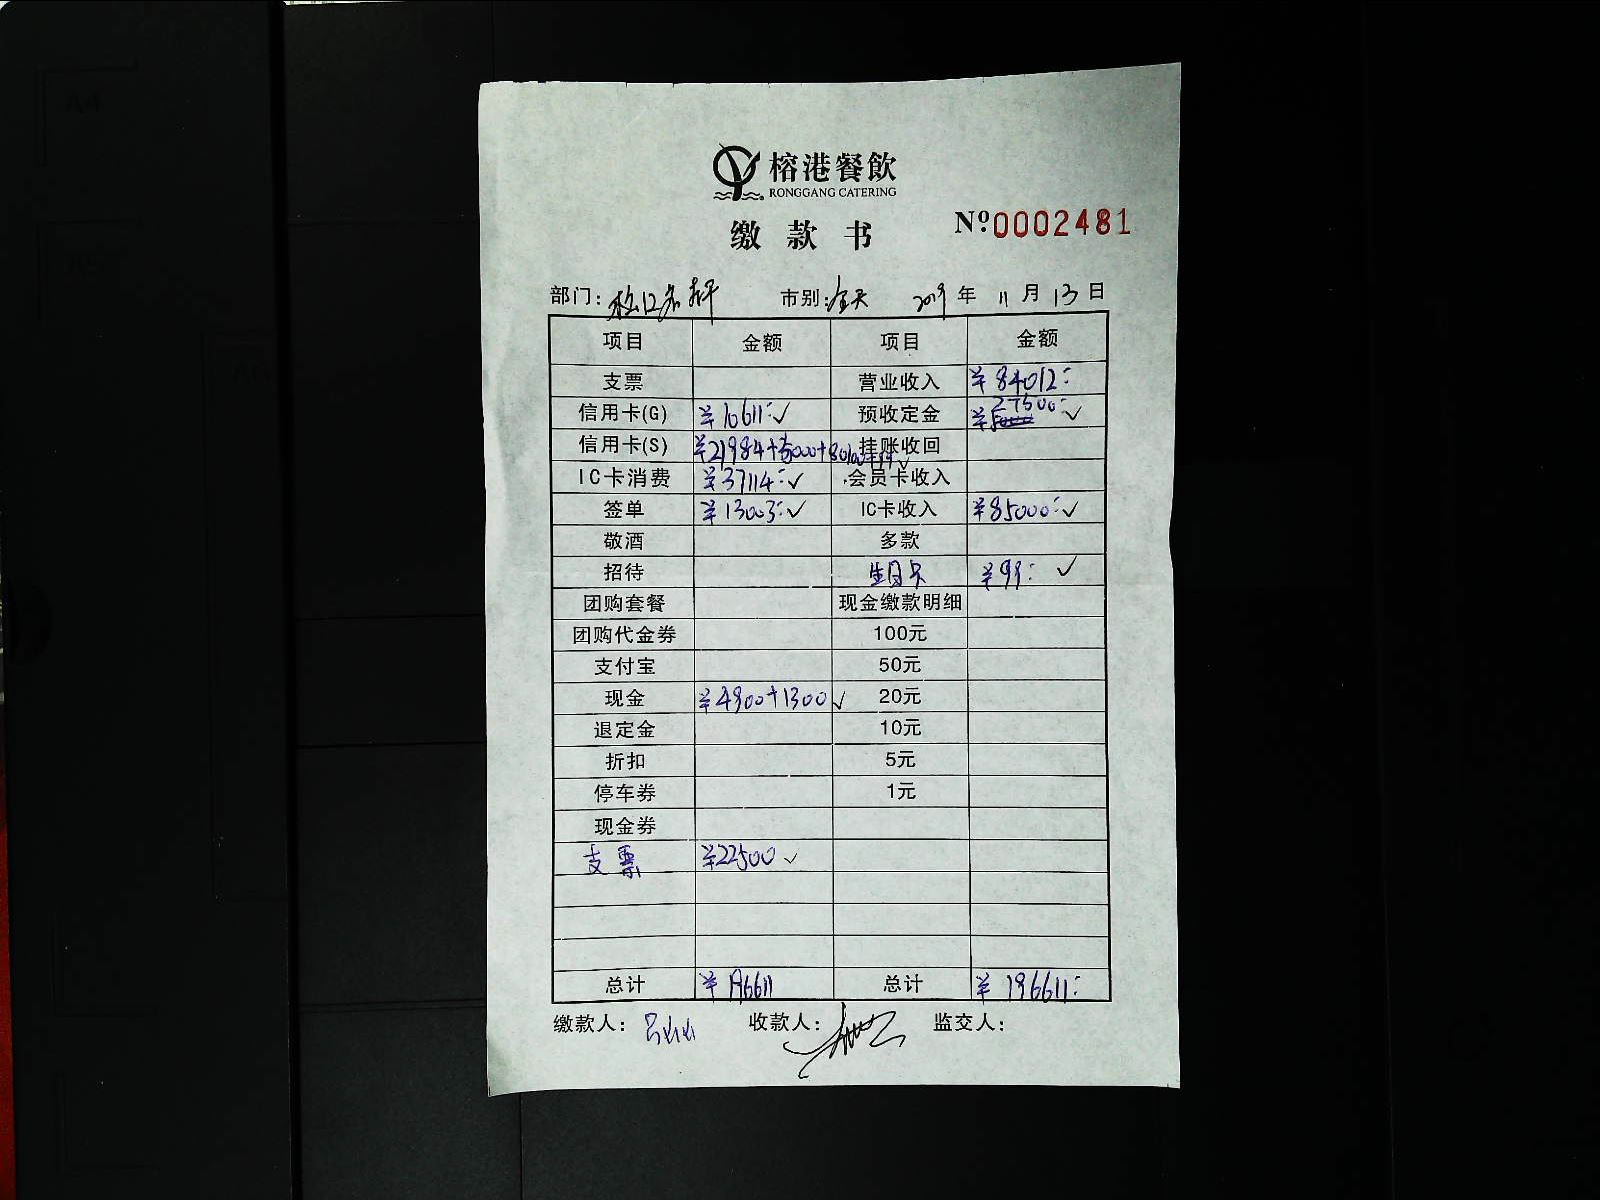 榕港餐飲
RONGGANG CATERING
缴款书 Nº0002481
部门: 市别:全天 2019年11月13日
项目 金额 项目 金额
支票 营业收入 ¥84012:
信用卡(G) ¥10611:✓ 预收定金 ¥27500:✓
信用卡(S) ¥21984+5000+80100+99✓ 挂账收回
IC卡消费 ¥37114:✓ 会员卡收入
签单 ¥13003:✓ IC卡收入 ¥85000:✓
敬酒 多款
招待 生日卡 ¥99:✓
团购套餐 现金缴款明细
团购代金券 100元
支付宝 50元
现金 ¥4900+1300✓ 20元
退定金 10元
折扣 5元
停车券 1元
现金券
支票 ¥22500✓
总计 ¥196611 总计 ¥196611:
缴款人: 收款人: 监交人: